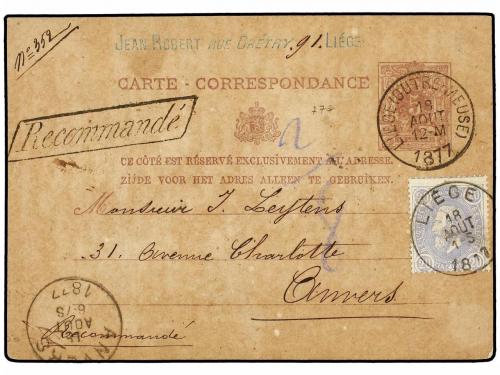 N° 352
JEAN ROBERT RUE GRÉTRY. 91. LIÉGE
CARTE - CORRESPONDANCE
Recommandé
LIEGE (OUTRE-MEUSE)
18
AOUT
12-M
1877
CE CÔTÉ EST RÉSERVÉ EXCLUSIVEMENT À L'ADRESSE.
ZIJDE VOOR HET ADRES ALLEEN TE GEBRUIKEN.
Monsieur J. Leytens
31. Avenue Charlotte
Anvers
LIÉGE
18
AOUT
1877
ANVERS
AOUT
6-7S
1877
Recommandé